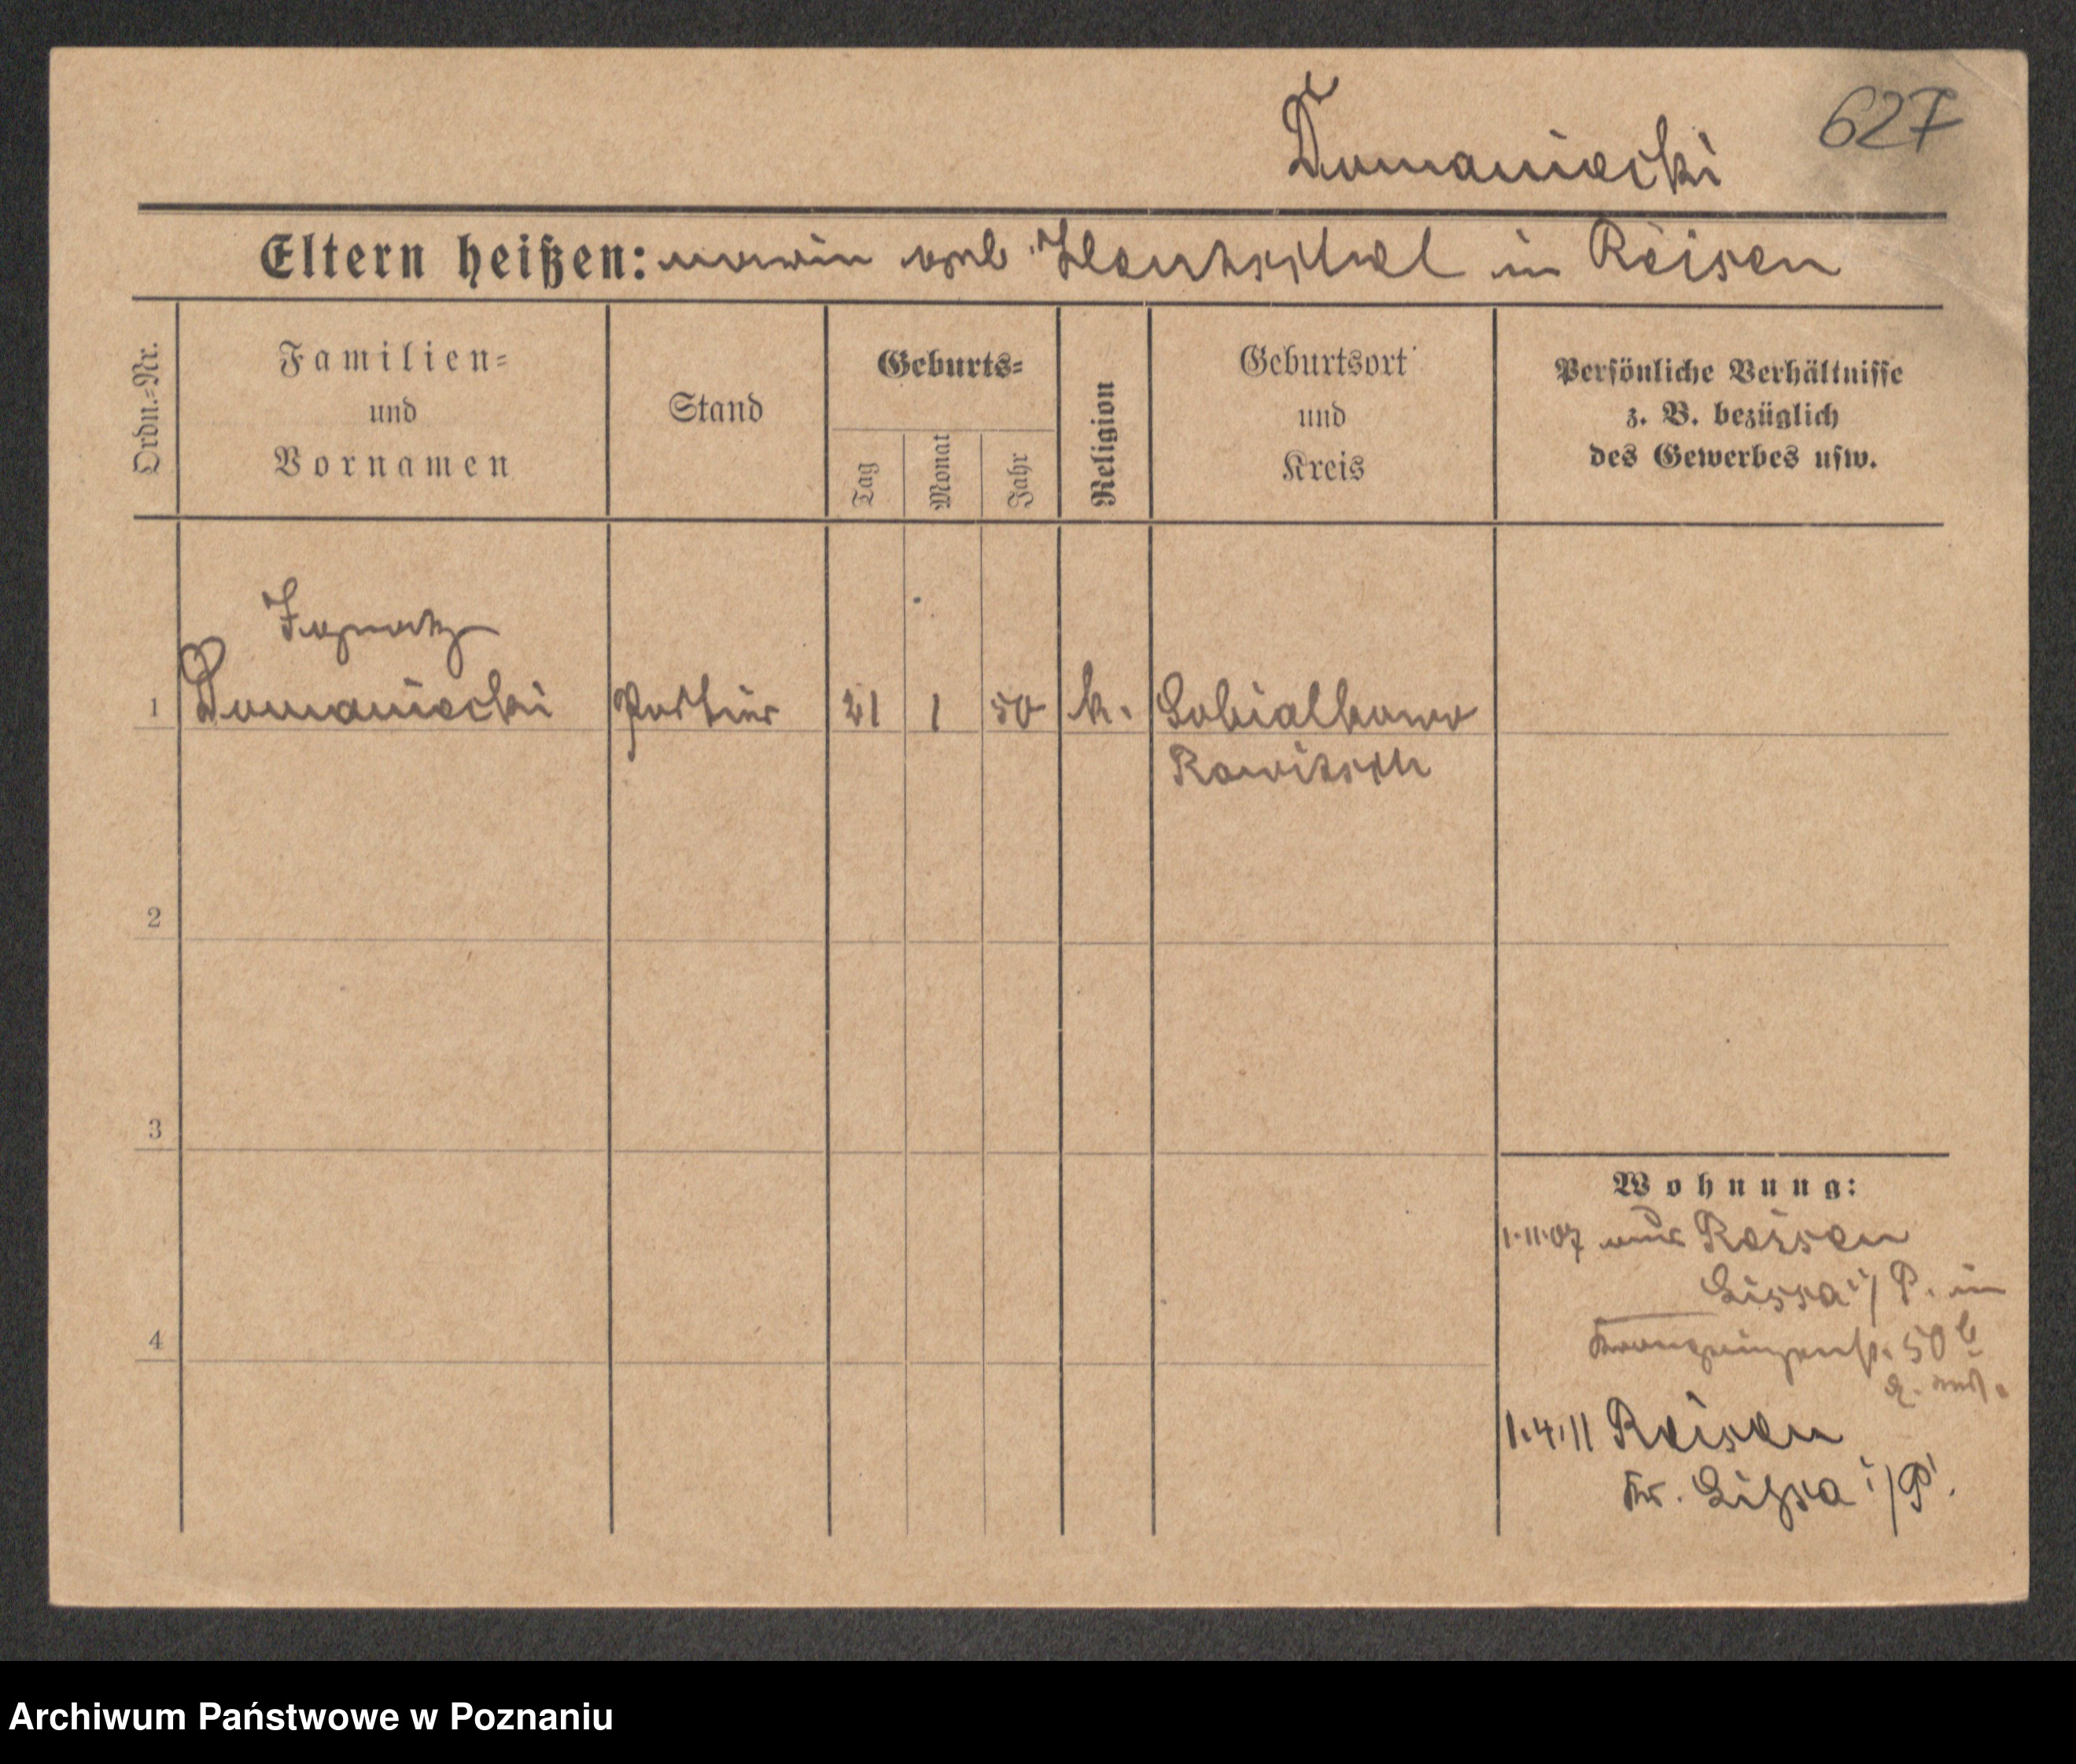 627
Domaniecki
Eltern heißen: in Reisen
Ordn.-Nr.
Familien-
und
Vornamen
Stand
Geburts-
Tag
Monat
Jahr
Religion
Geburtsort
und
Kreis
Persönliche Verhältnisse
z. B. bezüglich
des Gewerbes usw.
Ignatz
1 Domaniecki Portier 21 1 50 k. Sobialkowo
Rawitsch
2
3
4
Wohnung:
1.11.07 aus Reisen
Lissa i/P. in
50 b
1.4.11 Reisen
Kr. Lissa i/P.
Archiwum Państwowe w Poznaniu